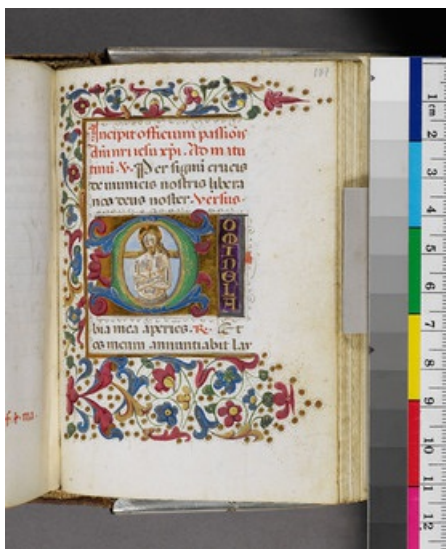 Incipit officium passiois
dni nri iesu xpi. Ad matu
tinu. V. Per signu crucis
de inimicis nostris libera
nos deus noster. Versus.
DOMINE LA
bia mea aperies. R. Et
os meum annuntiabit lau
f. 4. ma.
1 cm 2 3 4 5 6 7 8 9 10 11 12